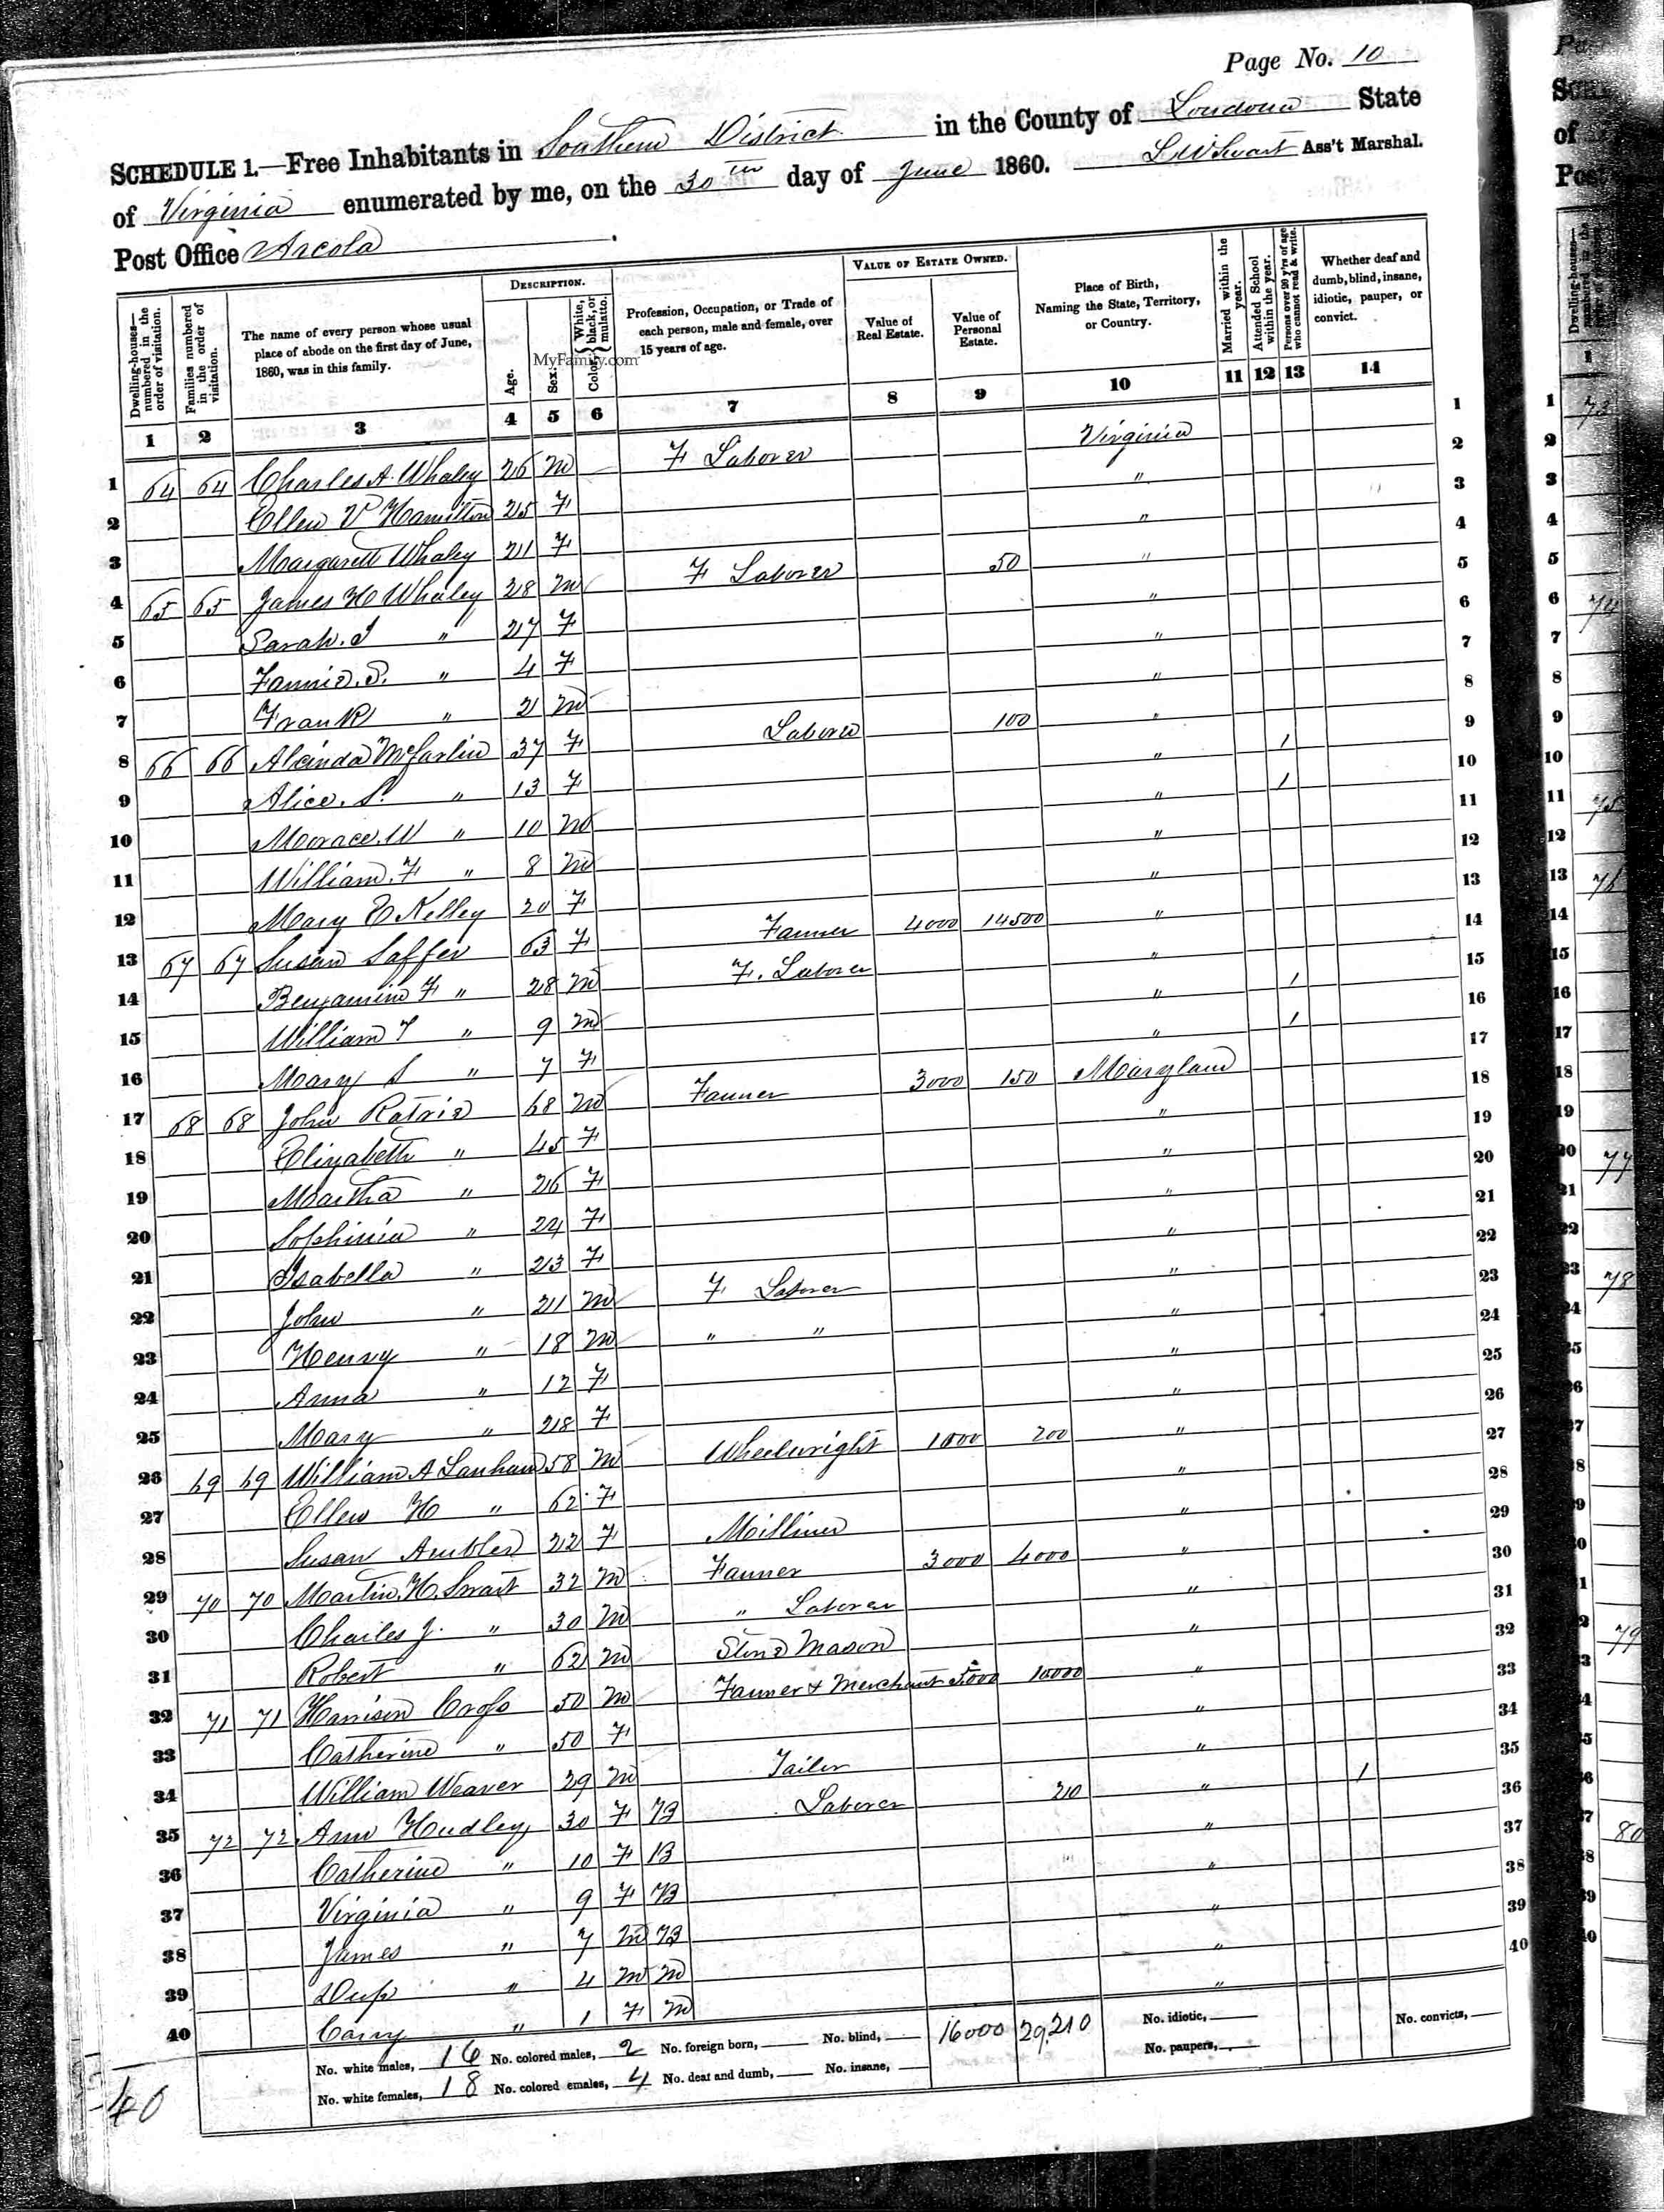 Page No. 10
SCHEDULE 1.—Free Inhabitants in Southern District in the County of Loudoun State
of Virginia enumerated by me, on the 30th day of June 1860. Ass't Marshal.
Post Office Arcola
Dwelling-houses—numbered in the order of visitation.
Families numbered in the order of visitation.
The name of every person whose usual place of abode on the first day of June, 1860, was in this family.
DESCRIPTION.
Age.
Sex.
Color, { White, black, or mulatto.
MyFamily.com
Profession, Occupation, or Trade of each person, male and female, over 15 years of age.
VALUE OF ESTATE OWNED.
Value of Real Estate.
Value of Personal Estate.
Place of Birth, Naming the State, Territory, or Country.
Married within the year.
Attended School within the year.
Persons over 20 y'rs of age who cannot read & write.
Whether deaf and dumb, blind, insane, idiotic, pauper, or convict.
1 2 3 4 5 6 7 8 9 10 11 12 13 14
1 64 64 Charles A. Whaley 26 m F Laborer Virginia 1
2 Ellen V Hamilton 25 F " 2
3 Margarett Whaley 21 F " 3
4 65 65 James H Whaley 28 m F Laborer 50 " 4
5 Sarah. J " 27 F " 5
6 Fannie. S. " 4 F " 6
7 Frank " 2 m " 7
8 66 66 Alcinda McFarlin 37 F Laborer 100 " 8
9 Alice. S. " 13 F " 1 9
10 Morace. W " 10 m " 1 10
11 William. F " 8 m " 11
12 Mary E Kelley 20 F " 12
13 67 67 Susan Saffer 63 F Farmer 4000 14500 " 13
14 Benjamin F " 28 m F. Laborer " 14
15 William T " 9 m " 1 15
16 Mary S " 7 F " 1 16
17 68 68 John Ratrie 68 m Farmer 3000 150 Maryland 17
18 Elizabeth " 45 F " 18
19 Martha " 26 F " 19
20 Sophinia " 24 F " 20
21 Isabella " 23 F " 21
22 John " 21 m F Laborer " 22
23 Henry " 18 m " " " 23
24 Anna " 12 F " 24
25 Mary " 28 F " 25
26 69 69 William A Lanham 58 m Wheelwright 1000 200 " 26
27 Ellen H " 62 F " 27
28 Susan Ambler 22 F Milliner " 28
29 70 70 Martin. H. Swart 32 m Farmer 3000 4000 " 29
30 Charles J. " 30 m " Laborer " 30
31 Robert " 62 m Stone Mason " 31
32 71 71 Harrison Cross 50 m Farmer & Merchant 5000 10000 " 32
33 Catherine " 50 F " 33
34 William Weaver 29 m Tailor " 34
35 72 72 Ann Hudley 30 F B Laborer 210 " 1 35
36 Catherine " 10 F B " 36
37 Virginia " 9 F B " 37
38 James " 7 m B " 38
39 " 4 m m " 39
40 Carry " 1 F m " 40
No. white males, 16 No. colored males, 2 No. foreign born, No. blind, 16000 29,210 No. idiotic, No. convicts,
No. white females, 18 No. colored emales, 4 No. deaf and dumb, No. insane, No. paupers,
40